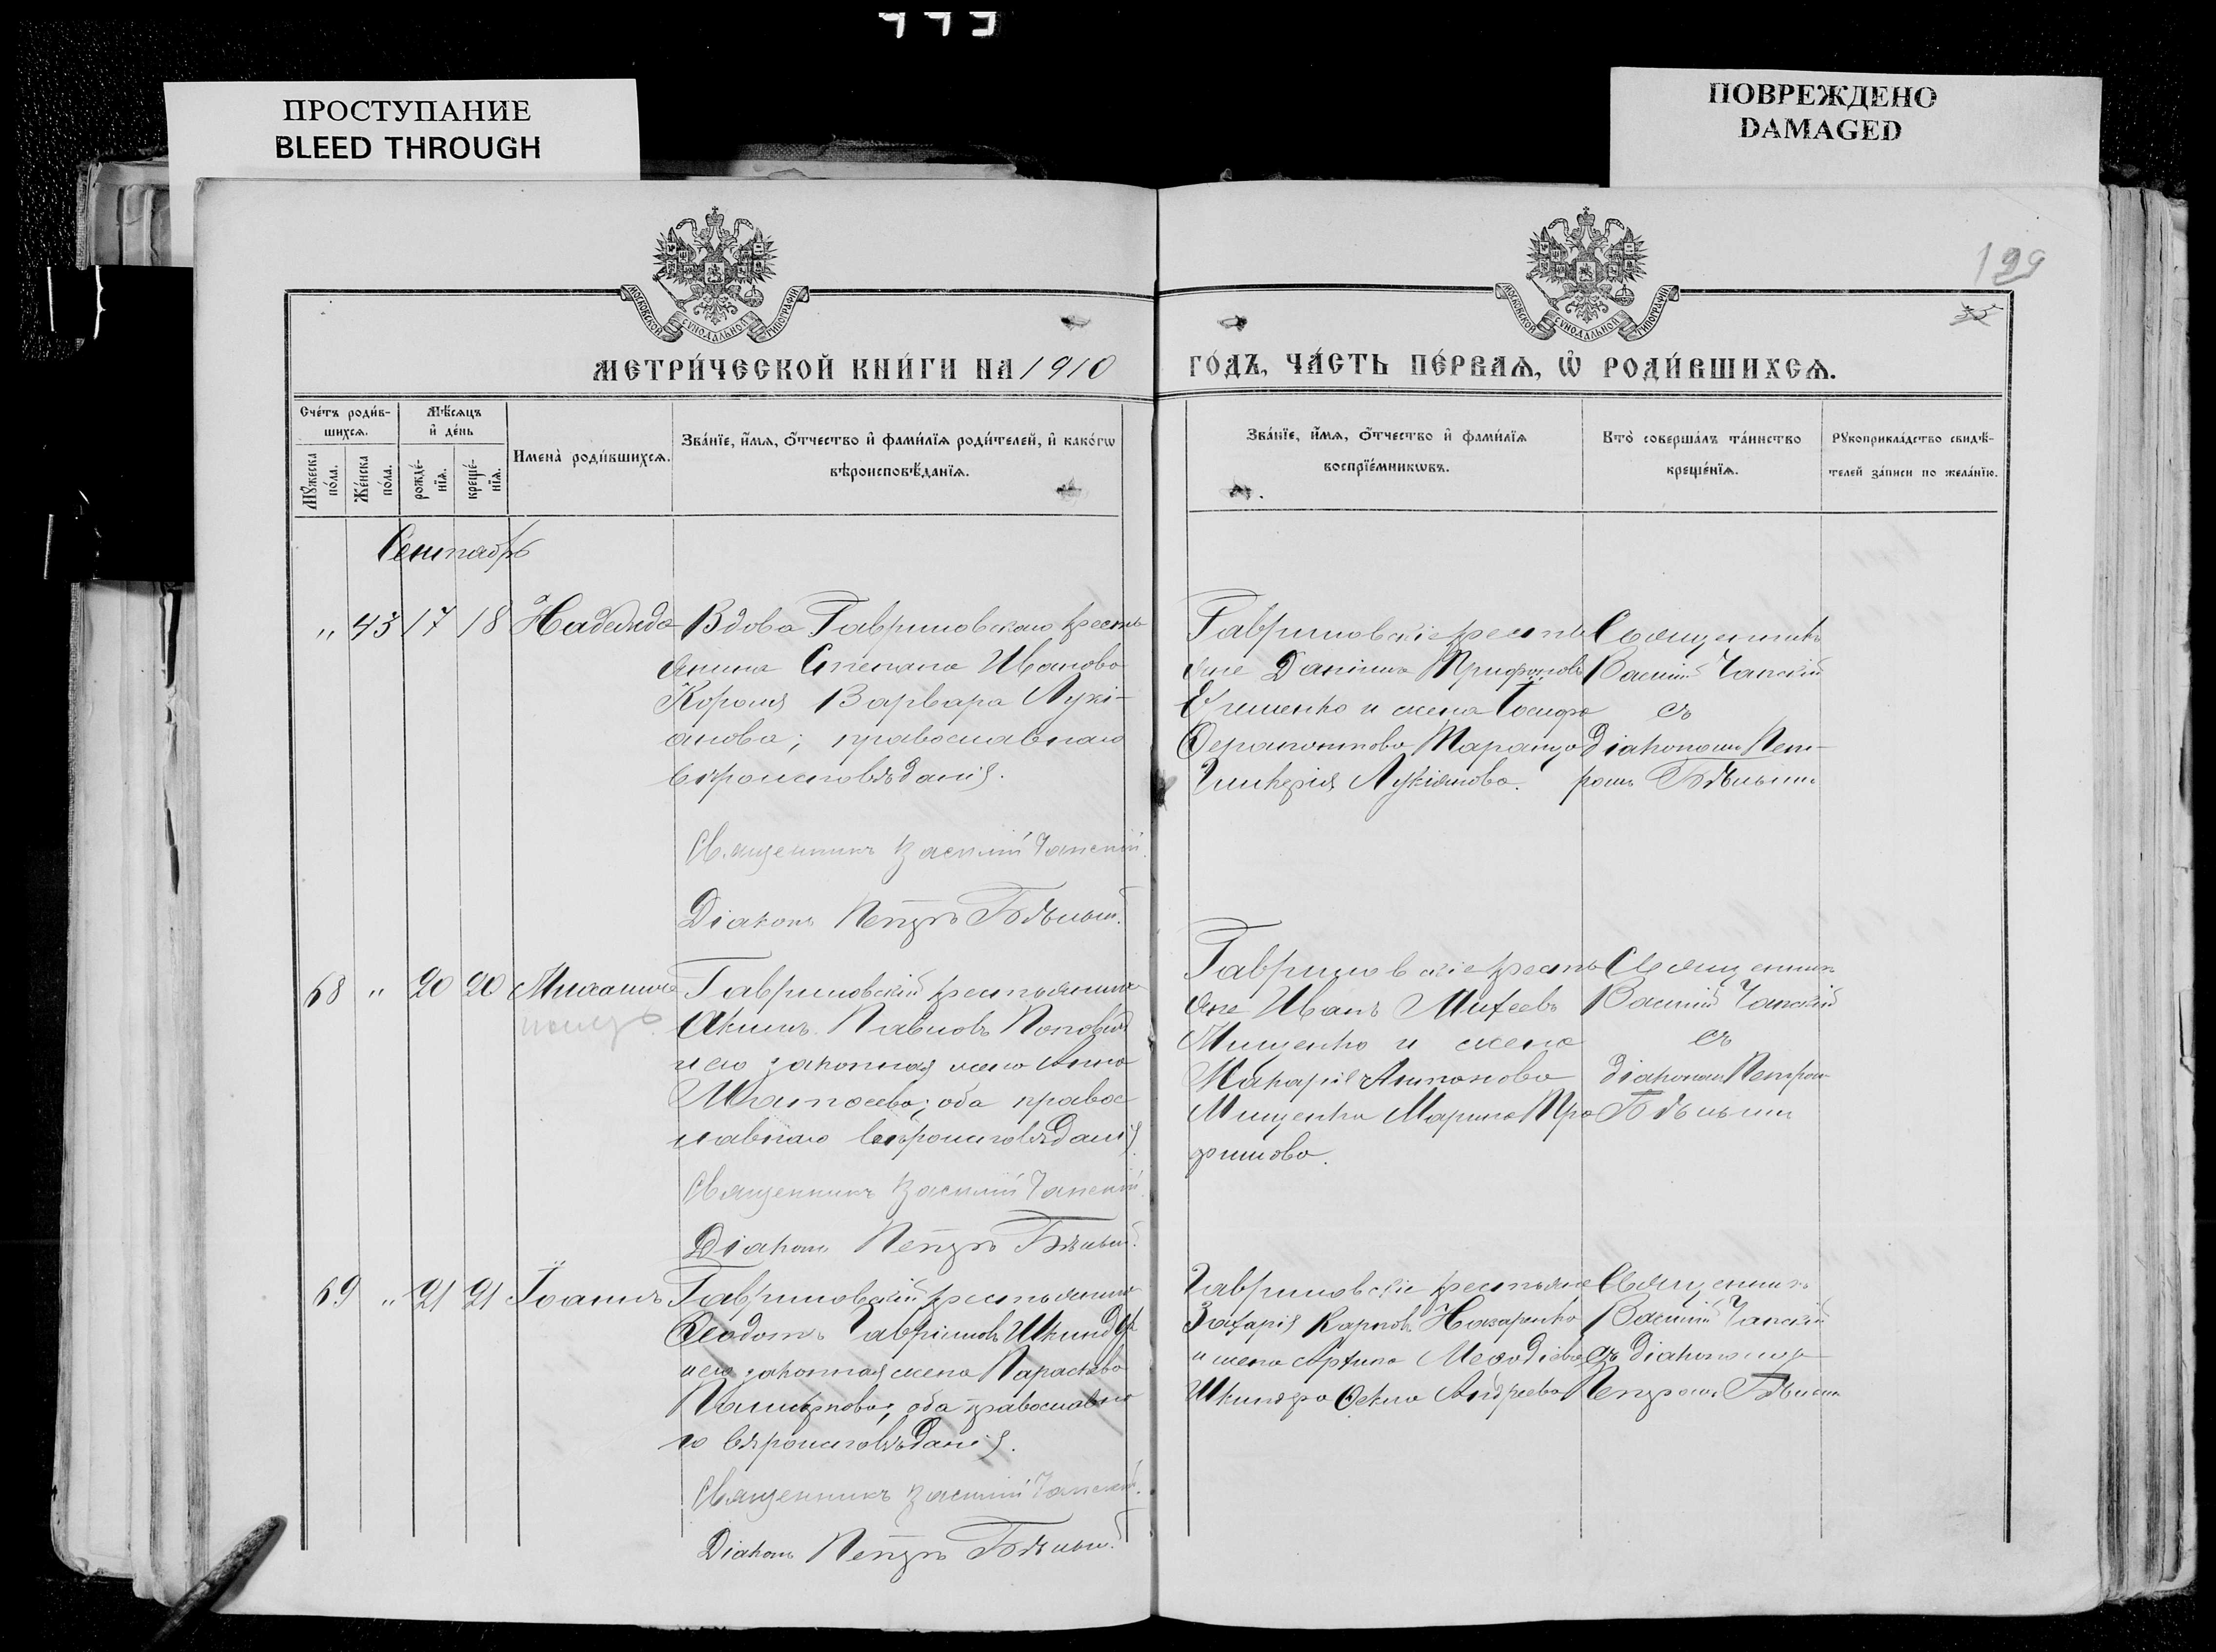 ПРОСТУПАНИЕ
BLEED THROUGH
ПОВРЕЖДЕНО
DAMAGED
129
МОСКОВСКОЙ СѴНОДАЛЬНОЙ ТИПОГРАФІИ
МОСКОВСКОЙ СѴНОДАЛЬНОЙ ТИПОГРАФІИ
МЕТРИ́ЧЕСКОЙ КНИ́ГИ НА 1910
ГО́ДЪ, ЧА́СТЬ ПЕ́РВАѦ, Ѡ҆ РОДИ́ВШИХСѦ.
Сче́тъ роди́в-
шихсѧ.
Мѣ́сѧцъ
и҆ де́нь
Мꙋ́жеска по́ла.
Же́нска по́ла.
рожде́-нїѧ.
креще́-нїѧ.
Имена̀ роди́вшихсѧ.
Зва́нїе, и҆́мѧ, ѻ҆́тчество и҆ фами́лїѧ роди́телей, и҆ како́гѡ
вѣроисповѣ́данїѧ.
Зва́нїе, и҆́мѧ, ѻ҆́тчество и҆ фами́лїѧ
воспрїе́мникѡвъ.
Кто̀ соверша́лъ та́инство
креще́нїѧ.
Рꙋкоприкла́дство свидѣ́-
телей за́писи по жела́нїю.
Сентябрь
„ 43 17 18 Надежда
Вдова Гавриловскаго кресть
янина Степана Иванова
Короля Варвара Лукі-
анова; православнаго
вѣроисповѣданія.
Священникъ Василій Чапскій.
Діаконъ Петръ Бѣлый.
Гавриловскіе кресть
яне Даніилъ Трифоновъ
и жена Іосифа
Таранца
Гликерія Лукіанова.
Священникъ
Василій Чапскій
съ
діакономъ Пет-
ромъ Бѣлымъ
68 „ 20 20
Гавриловскій крестьянинъ
Акимъ Павловъ
и его законная жена Анна
оба правос
лавнаго вѣроисповѣданія.
Священникъ Василій Чапскій.
Діаконъ Петръ Бѣлый.
Гавриловскіе кресть
яне Иванъ Михеевъ
Мищенко и жена
Макарія Антонова
Мищенка Марина Тро
фимова.
Священникъ
Василій Чапскій
съ
діакономъ Петромъ
Бѣлымъ
69 „ 21 21 Іоаннъ
Гавриловскій крестьянинъ
Ѳеодотъ Гавріиловъ Шкиндеръ
и его законная жена Параскева
оба православна
го вѣроисповѣданія.
Священникъ Василій Чапскій.
Діаконъ Петръ Бѣлый.
Гавриловскіе крестьяне
Захарія Карповъ Назаренко
и жена Меѳодіева
Шкиндера Ѳекла Андреева
Священникъ
Василій Чапскій
съ діакономъ
Петромъ Бѣлымъ